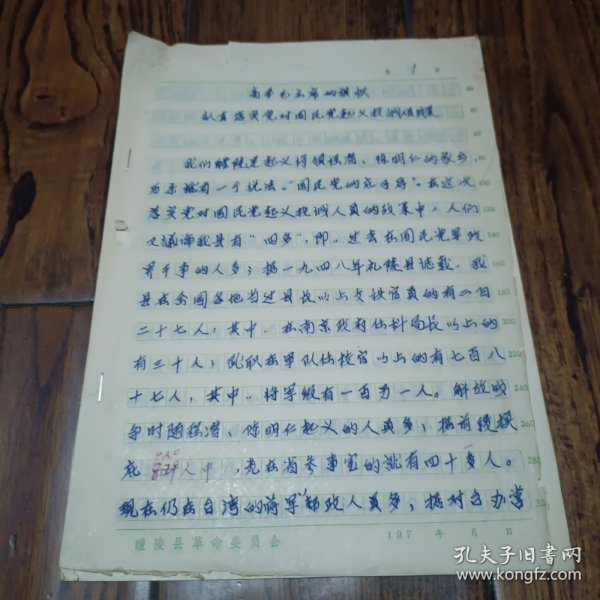 第 1 页
高举毛主席的旗帜
认真落实党对国民党起义投诚政策
我们醴陵是起义将领程潜、陈明仁的家乡,
历来就有一个说法:"国民党的 "。在这次
落实党对国民党起义投诚人员的政策中,人们
又议论我县有"四多",即:过去在国民党军政
界干事的人多;据一九四八年礼陵县志载,我
县在全国各地当过县长以上文职官员的有二百
二十七人,其中:在南京政府任科局长以上的
有三十人;武职在军队任校官以上的有七百八
十七人,其中:将军级有一百另一人。解放战
争时随程潜、陈明仁起义的人员多;据前统摸
底 人中,光在省参事室的就有四十多人。
现在仍在台湾的蒋军政人员多;据对台办掌
20
40
60
80
100
120
140
160
180
200
220
240
260
280
300
醴陵县革命委员会
197 年 月 日
孔夫子旧书网
www.kongfz.com